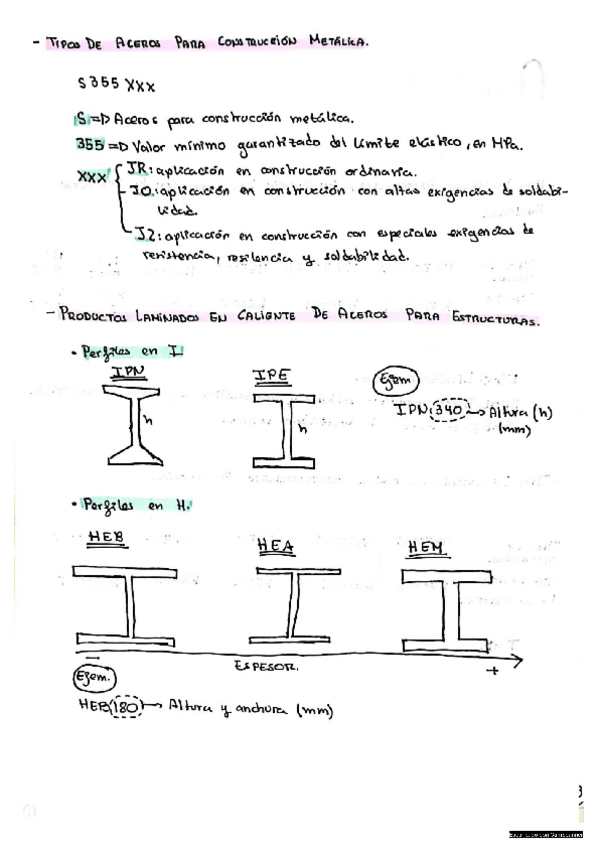 - TIPOS DE ACEROS PARA CONSTRUCCIÓN METÁLICA.
S355 XXX
S => Aceros para construcción metálica.
355 => Valor mínimo garantizado del límite elástico, en MPa.
XXX { JR: aplicación en construcción ordinaria.
JO: aplicación en construcción con altas exigencias de soldabi-
lidad.
J2: aplicación en construcción con especiales exigencias de
resistencia, resilencia y soldabilidad.
- PRODUCTOS LAMINADOS EN CALIENTE DE ACEROS PARA ESTRUCTURAS.
• Perfiles en I.
IPN IPE Ejem
h h IPN 340 → Altura (h)
(mm)
• Perfiles en H.
HEB HEA HEM
- ESPESOR. +
Ejem.
HEB 180 → Altura y anchura (mm)